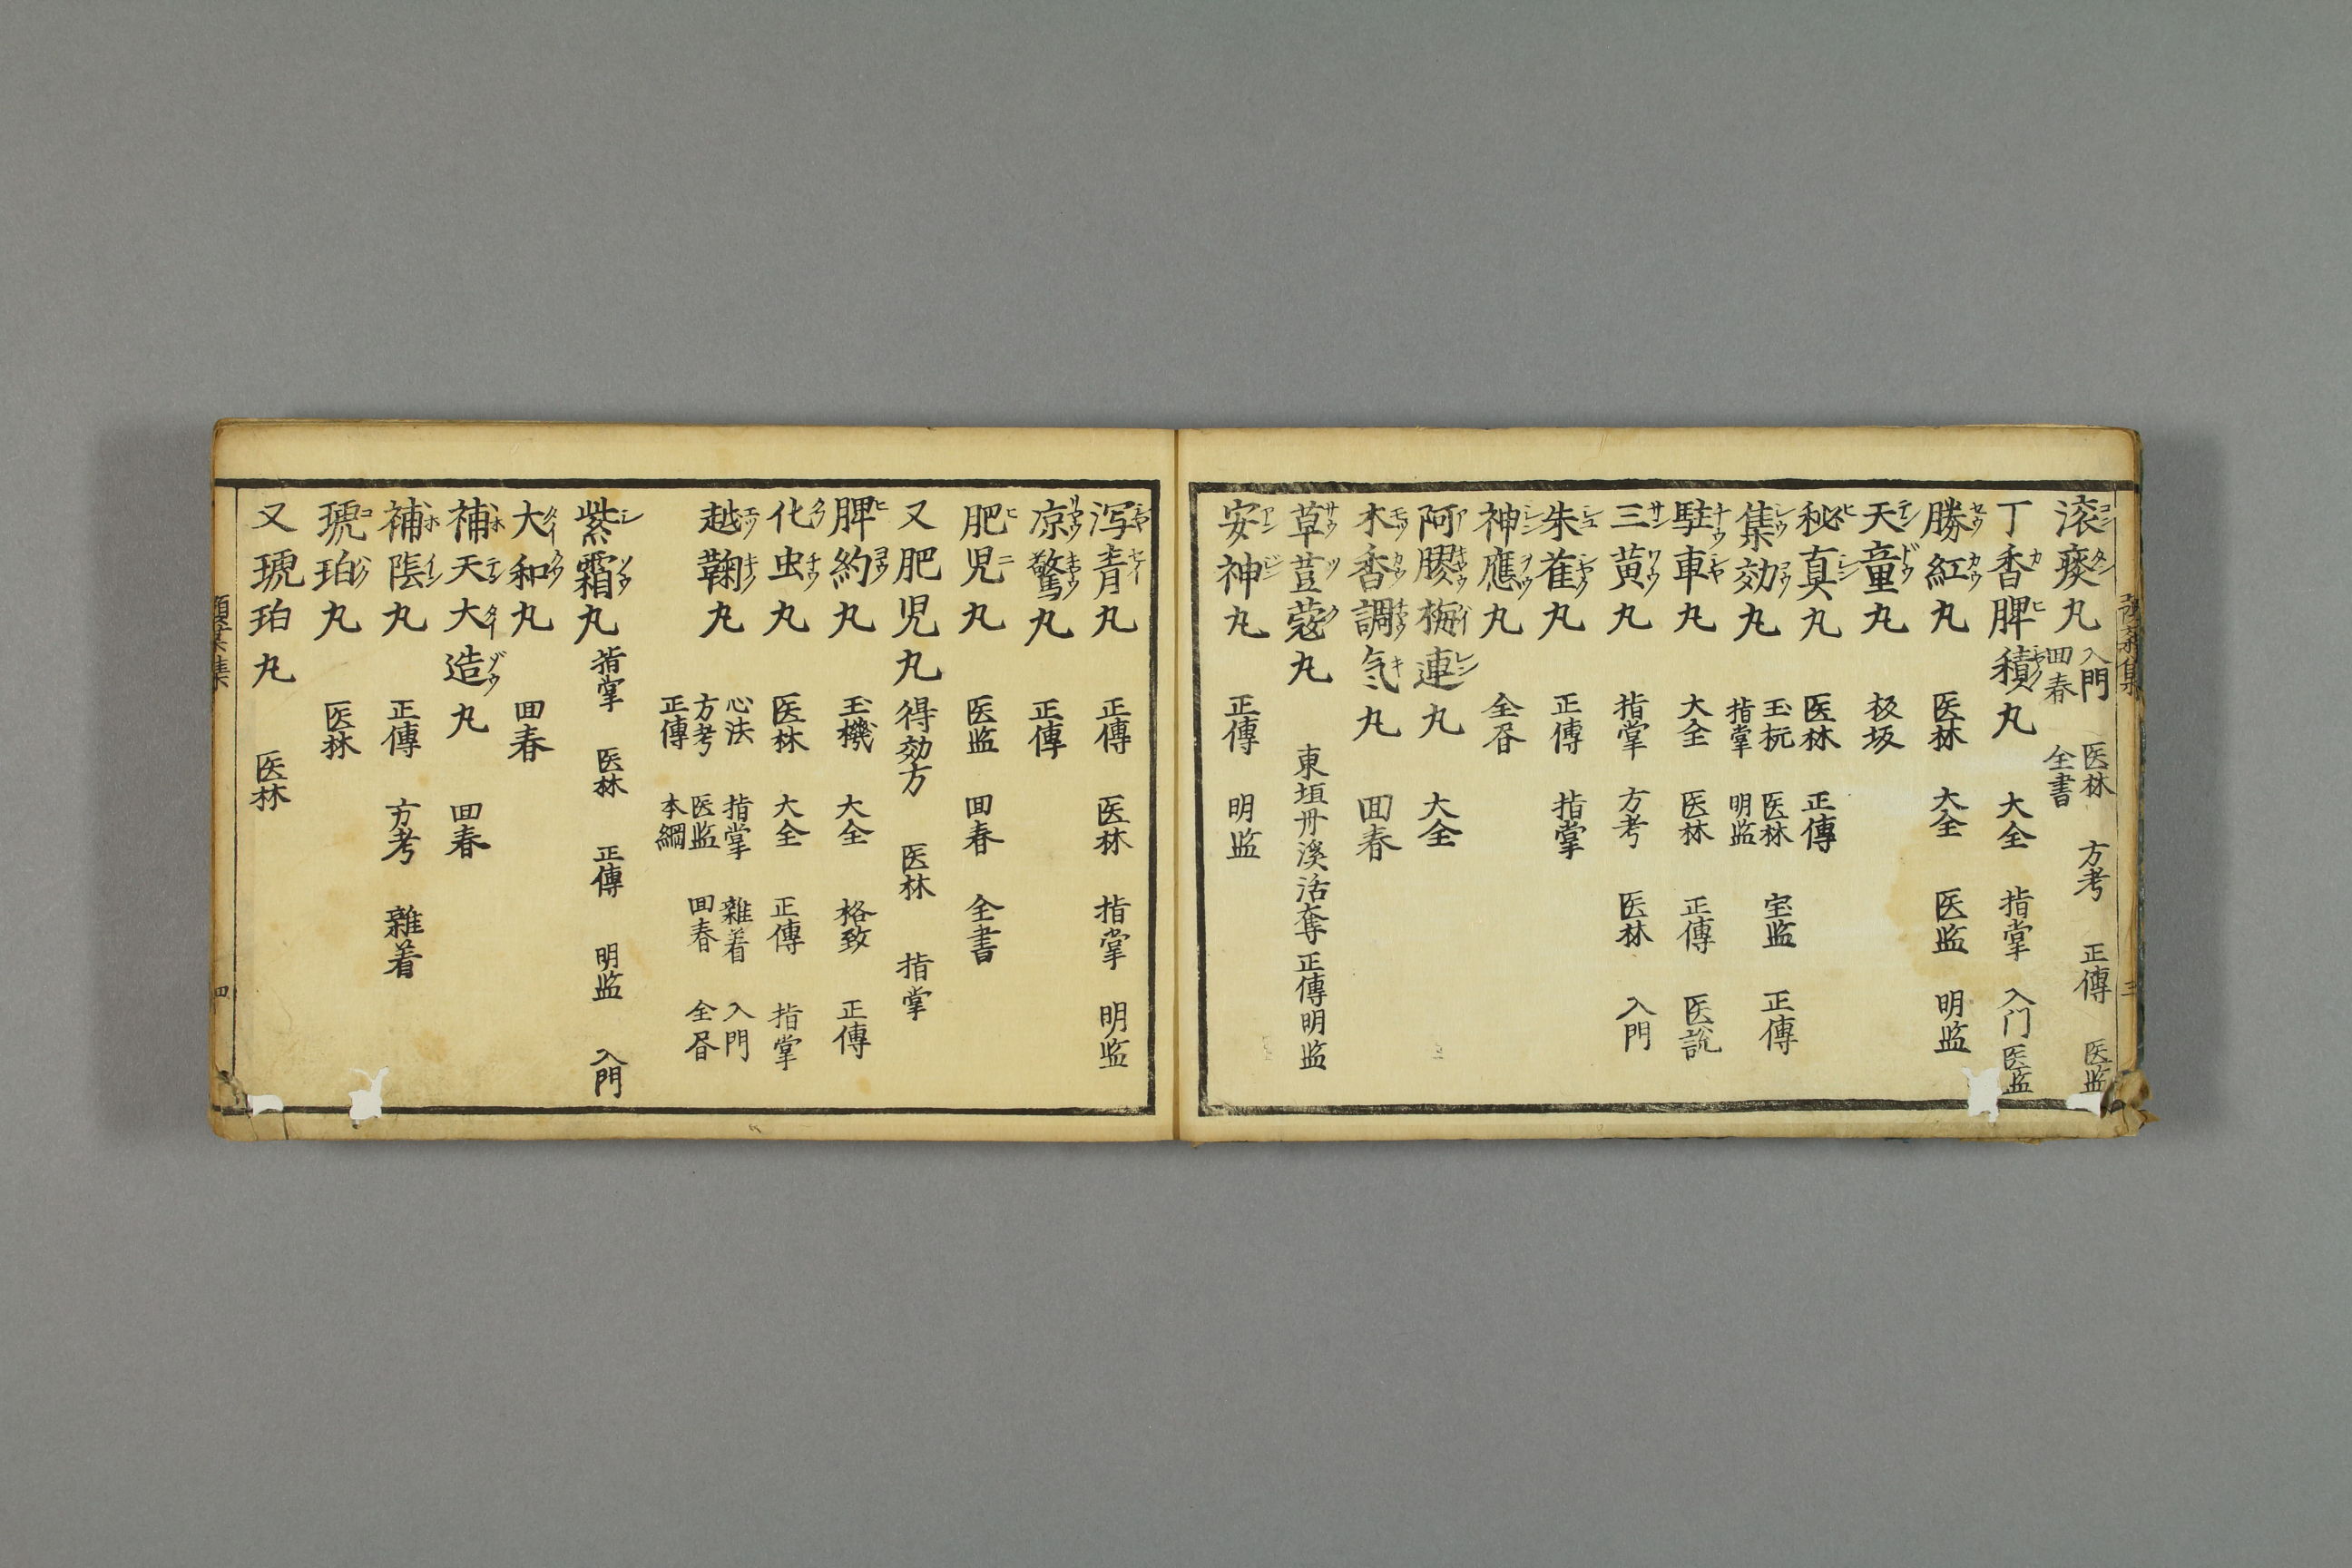 滚痰丸 入門 回春 医林 全書 方考 正傳 医监
丁香脾積丸 大全 指掌 入门 医监
勝紅丸 医林 大全 医监 明监
天童丸 板坂
秘真丸 医林 正傳
集効丸 玉杬 指掌 医林 明监 宝监 正傳
駐車丸 大全 医林 正傳 医說
三黄丸 指掌 方考 医林 入門
朱雀丸 正傳 指掌
神應丸 全昏
阿膠梅連丸 大全
木香調気丸 回春
草荳蔻丸 東垣丹溪活奪正傳明监
安神丸 正傳 明监
泻青丸 正傳 医林 指掌 明监
凉驚丸 正傳
肥児丸 医监 回春 全書
又肥児丸 得効方 医林 指掌
脾約丸 玉機 大全 格致 正傳
化虫丸 医林 大全 正傳 指掌
越鞠丸 心法 方考 正傳 指掌 医监 本綱 雜着 回春 入門 全昏
紫霜丸 指掌 医林 正傳 明监 入門
大和丸 回春
補天大造丸 回春
補陰丸 正傳 方考 雜着
琥珀丸 医林
又琥珀丸 医林
四